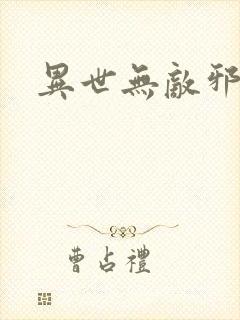 異世無敵邪
曹占禮